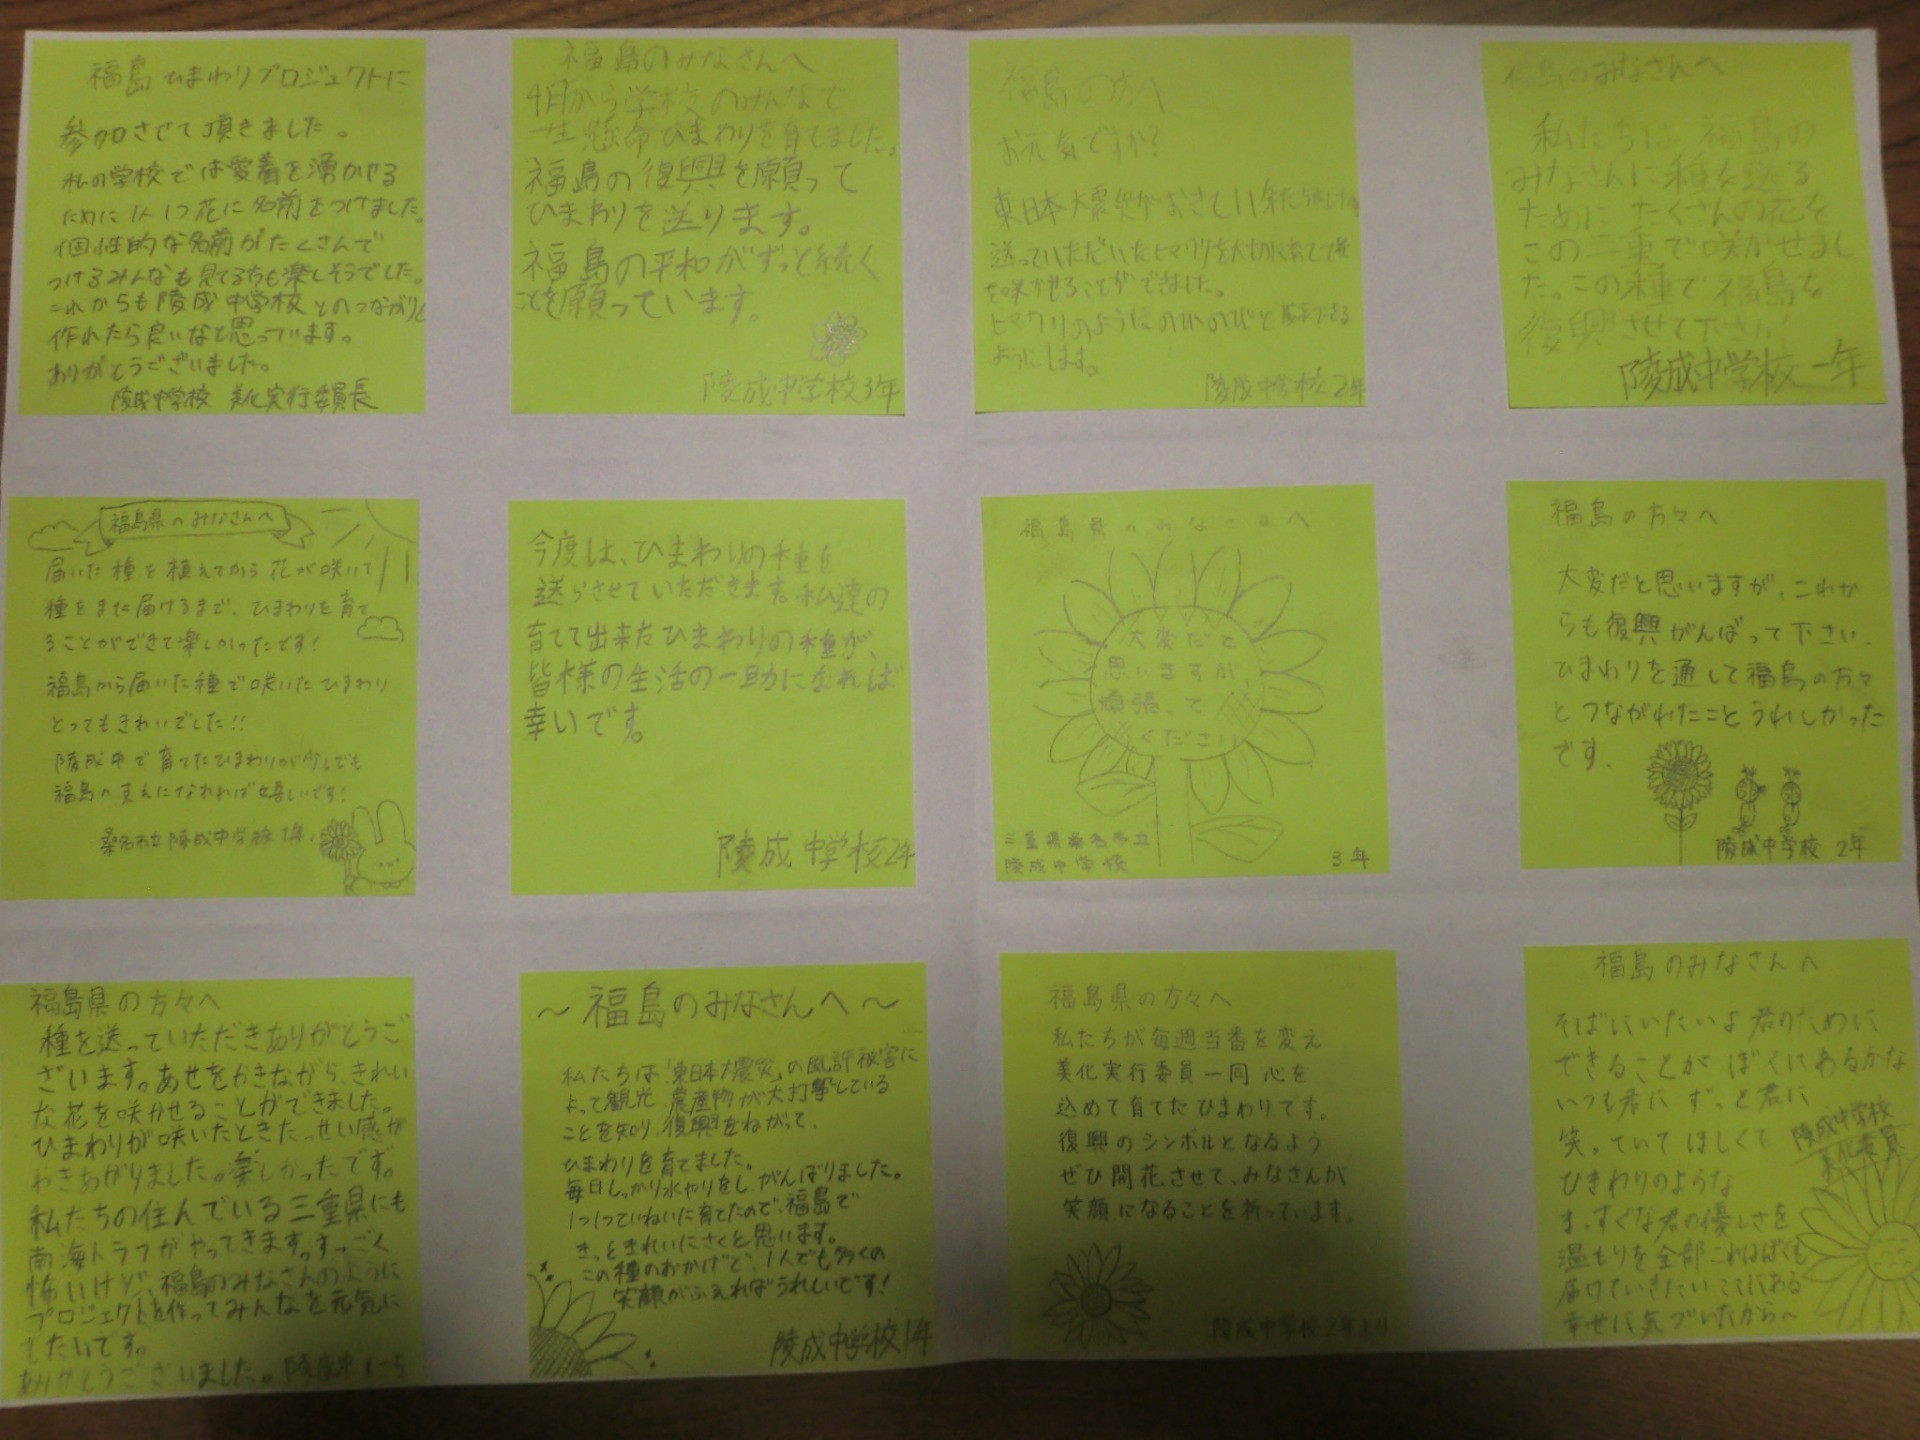 福島ひまわりプロジェクトに
参加させて頂きました。
私の学校では愛着を湧かせる
ために1人1つ花に名前をつけました。
個性的な名前がたくさんで
つけるみんなも見てる方も楽しそうでした。
これからも陵成中学校とのつながりを
作れたら良いなと思っています。
ありがとうございました。
陵成中学校 美化実行委員長
福島のみなさんへ
4月から学校のみんなで
一生懸命ひまわりを育てました。
福島の復興を願って
ひまわりを送ります。
福島の平和がずっと続く
ことを願っています。
陵成中学校3年
福島の方へ
お元気ですか?
東日本大震災がおきて11年たちました。
送っていただいたヒマワリを大切に育てて花
を咲かせることができました。
ヒマワリのようにのびのびと成長できる
ようにします。
陵成中学校2年
福島のみなさんへ
私たちは福島の
みなさんに種を送る
ためにたくさんの花を
この三重で咲かせまし
た。この種で福島を
復興させて下さい!
陵成中学校一年
福島県のみなさんへ
届いた種を植えてから花が咲いて
種をまた届けるまで、ひまわりを育て
ることができて楽しかったです!
福島から届いた種で咲いたひまわり
とってもきれいでした!!
陵成中で育てたひまわりが少しでも
福島の支えになれれば嬉しいです!
桑名市立陵成中学校1年
今度は、ひまわりの種を
送らさせていただきます。私達の
育てて出来たひまわりの種が、
皆様の生活の一助になれば
幸いです。
陵成中学校2年
福島県のみなさんへ
大変だと
思いますが、
頑張って
ください
三重県桑名市立
陵成中学校
3年
福島の方々へ
大変だと思いますが、これか
らも復興がんばって下さい。
ひまわりを通して福島の方々
とつながれたことうれしかった
です。
陵成中学校 2年
福島県の方々へ
種を送っていただきありがとうご
ざいます。あせをかきながら、きれい
な花を咲かせることができました。
ひまわりが咲いたときたっせい感が
わきあがりました。楽しかったです。
私たちの住んでいる三重県にも
南海トラフがやってきます。すっごく
怖いけど、福島のみなさんのように
プロジェクトを作ってみんなを元気に
したいです。
ありがとうございました。陵成中1-5
～福島のみなさんへ～
私たちは「東日本大震災」の風評被害に
よって観光、農産物が大打撃している
ことを知り、復興をねがって、
ひまわりを育てました。
毎日しっかり水やりをし、がんばりました。
1つ1つていねいに育てたので、福島で
きっときれいにさくと思います。
この種のおかげで、1人でも多くの
笑顔がふえればうれしいです!
陵成中学校1年
福島県の方々へ
私たちが毎週当番を変え
美化実行委員一同 心を
込めて育てたひまわりです。
復興のシンボルとなるよう
ぜひ開花させて、みなさんが
笑顔になることを祈っています。
陵成中学校2年より
福島のみなさんへ
そばにいたいよ 君のために
できることが ぼくにあるかな
いつも君に ずっと君に
笑っていてほしくて
ひまわりのような
まっすぐな君の優しさを
温もりを全部これからぼくも
届けていきたいここにある
幸せに気づいたから～
陵成中学校
美化委員